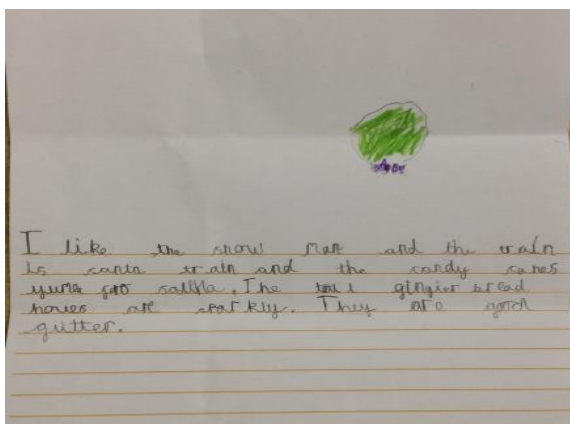 I like the snow man and the train
is santa train and the candy canes
The gingier bread
houses are sparkly. They are good
gutter.